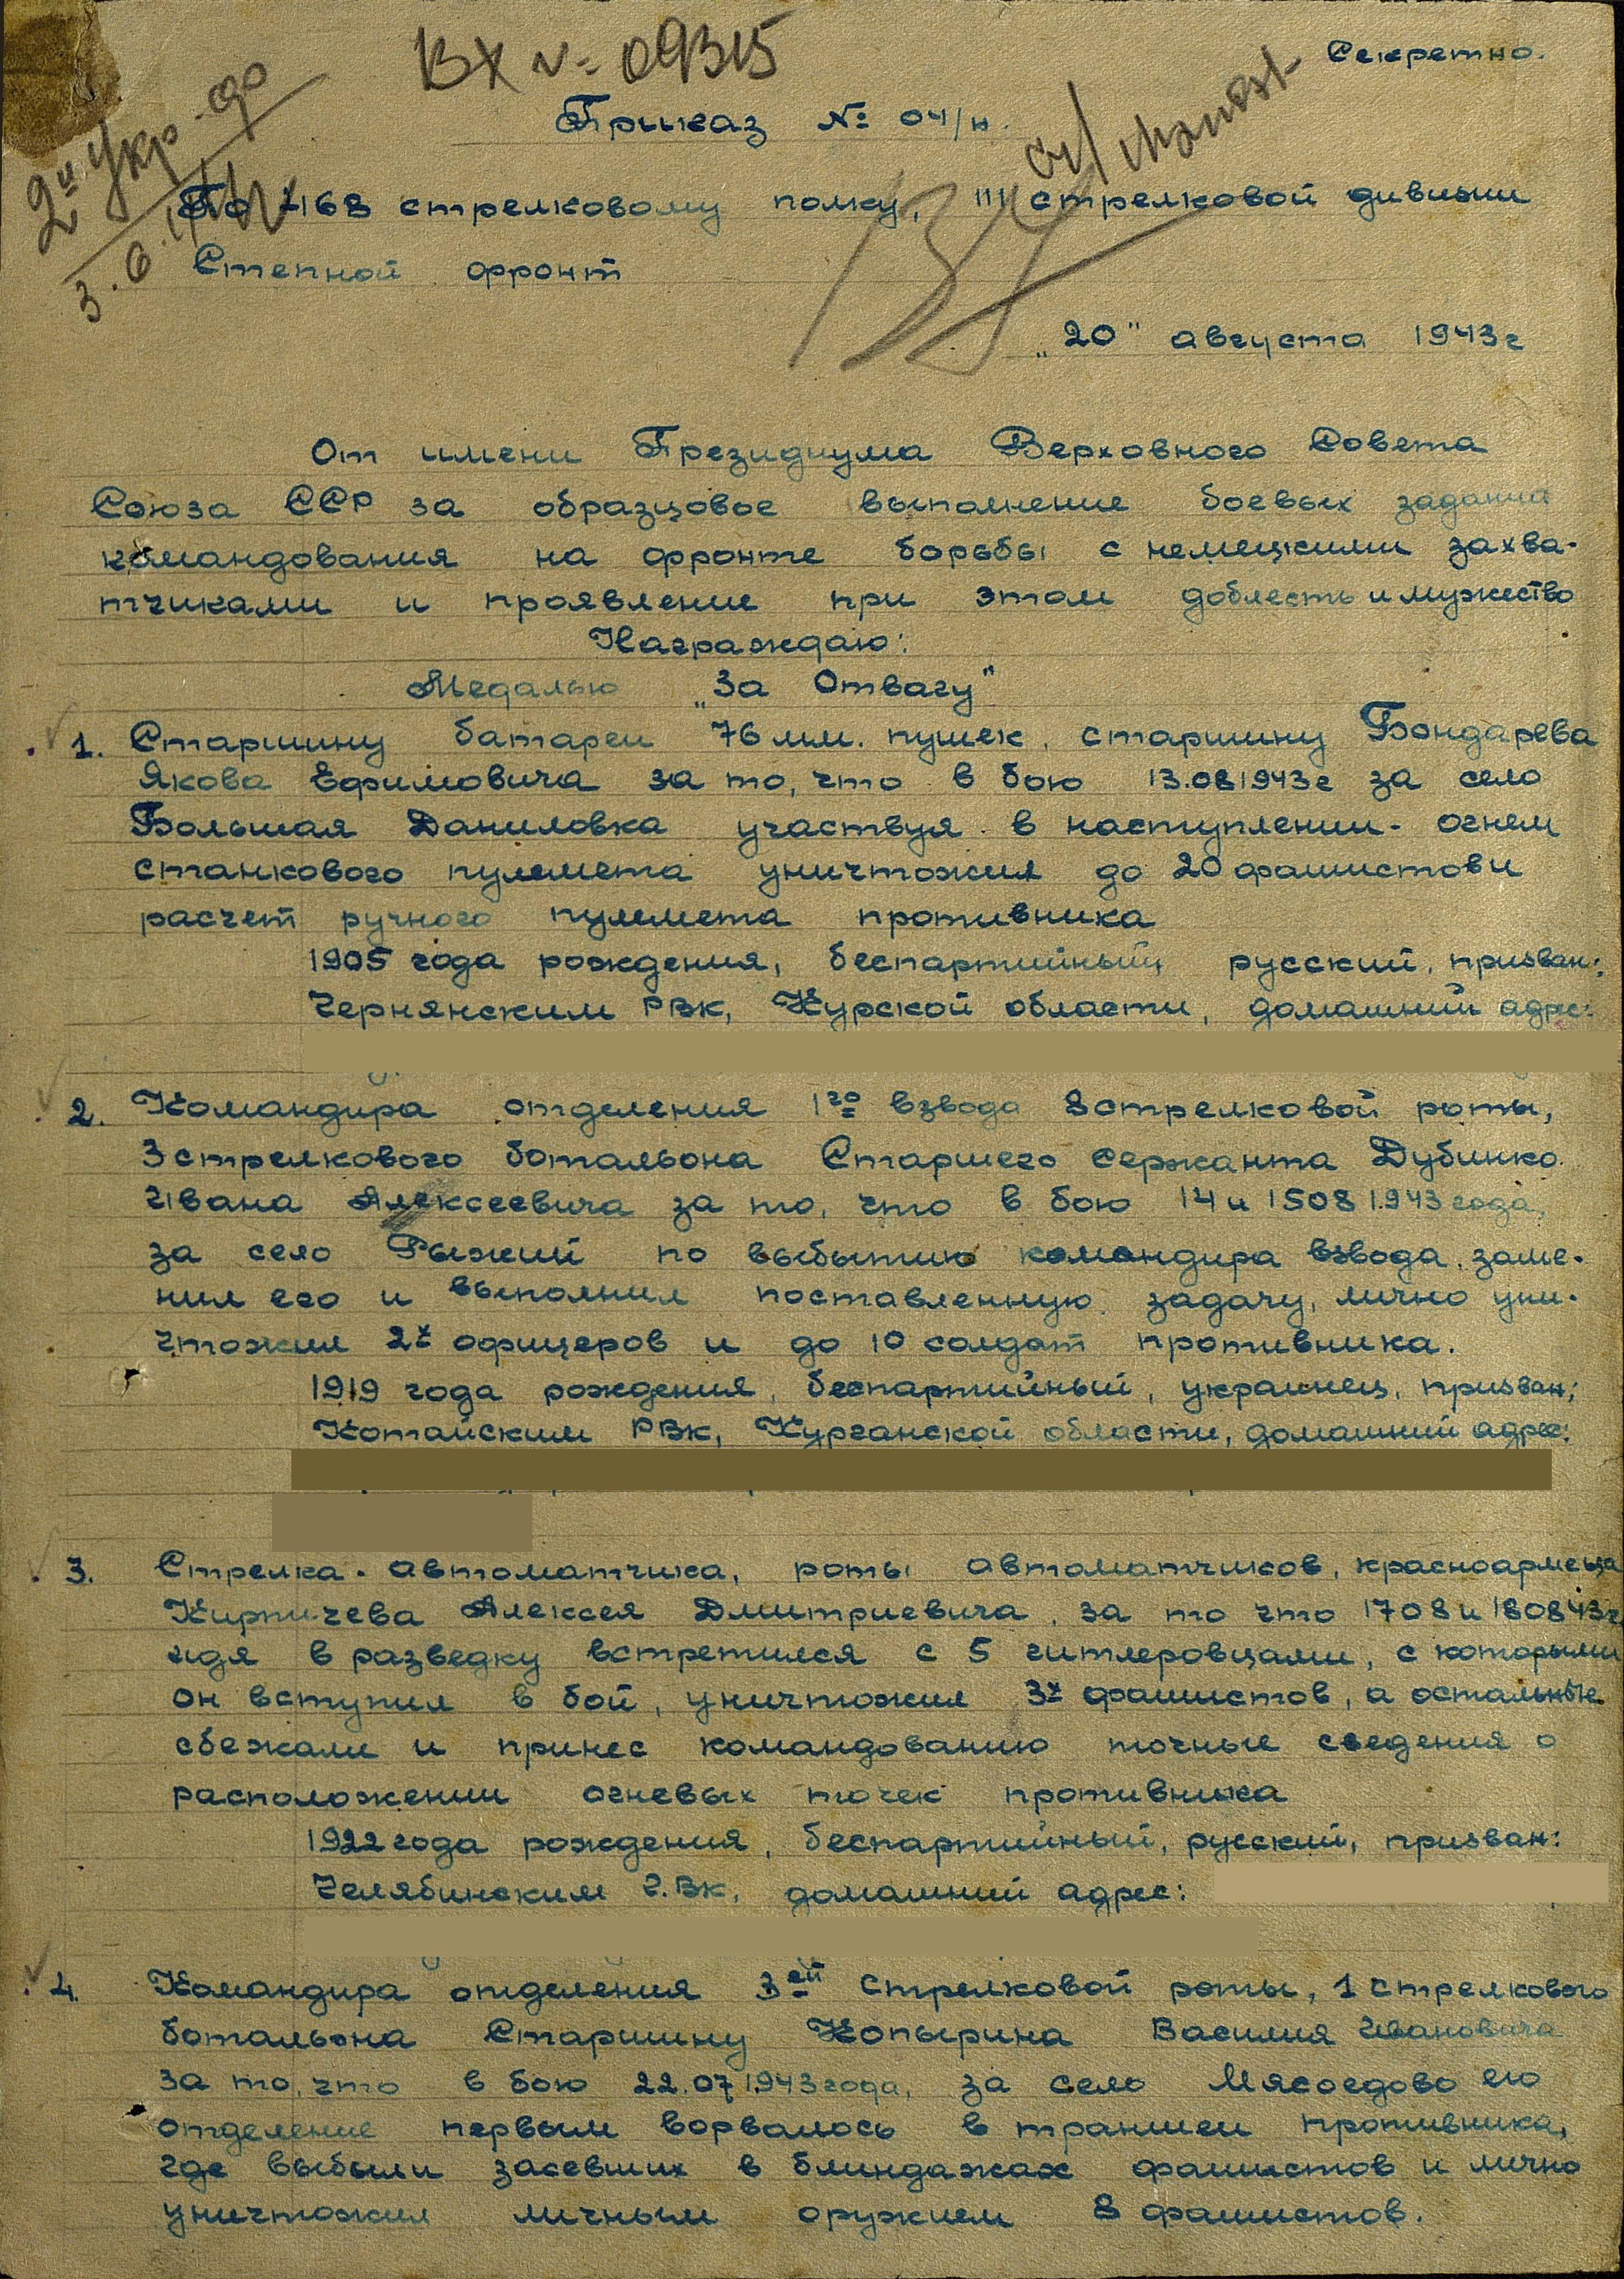 Вх № 09315
Секретно.
Приказ № 04/н.
2й Укр. ф
3.6.44
По 468 стрелковому полку, 111 стрелковой дивизии
Степной фронт
„20" августа 1943г
От имени Президиума Верховного Совета
Союза ССР за образцовое выполнение боевых задании
командования на фронте борьбы с немецкими захва-
тчиками и проявление при этом доблесть и мужество
Награждаю:
Медалью „За Отвагу"
1. Старшину батареи 76 мм. пушек, старшину Бондарева
Якова Ефимовича за то, что в бою 13.08 1943г за село
Большая Даниловка участвуя в наступлении - огнем
станкового пулемета уничтожил до 20 фашистов и
расчет ручного пулемета противника
1905 года рождения, беспартийный, русский, призван:
Чернянским РВК, Курской области, домашний адрес:
2. Командира отделения 1го взвода 8 стрелковой роты,
3 стрелкового ботальона Старшего сержанта Дубинко
Ивана Алексеевича за то, что в бою 14 и 15 08 1943 года,
за село Рыжий по выбытию командира взвода, заме-
нил его и выполнил поставленную задачу, лично уни-
чтожил 2х офицеров и до 10 солдат противника.
1919 года рождения, беспартийный, украинец, призван:
Котайским РВК, Курганской области, домашний адрес:
3. Стрелка-автоматчика, роты автоматчиков, красноармейца
Кирпичева Алексея Дмитриевича, за то что 17 08 и 18 08 43г
идя в разведку встретился с 5 гитлеровцами, с которыми
он вступил в бой, уничтожил 3х фашистов, а остальные
сбежали и принес командованию точные сведения о
расположении огневых точек противника
1922 года рождения, беспартийный, русский, призван:
Челябинским Г.ВК, домашний адрес:
4. Командира отделения 3ей стрелковой роты, 1 стрелкового
ботальона Старшину Копырина Василия Ивановича
за то, что в бою 22.07 1943 года, за село Мясоедово его
отделение первым ворвалось в траншеи противника,
где выбыли засевших в блиндажах фашистов и лично
уничтожил личным оружием 8 фашистов.